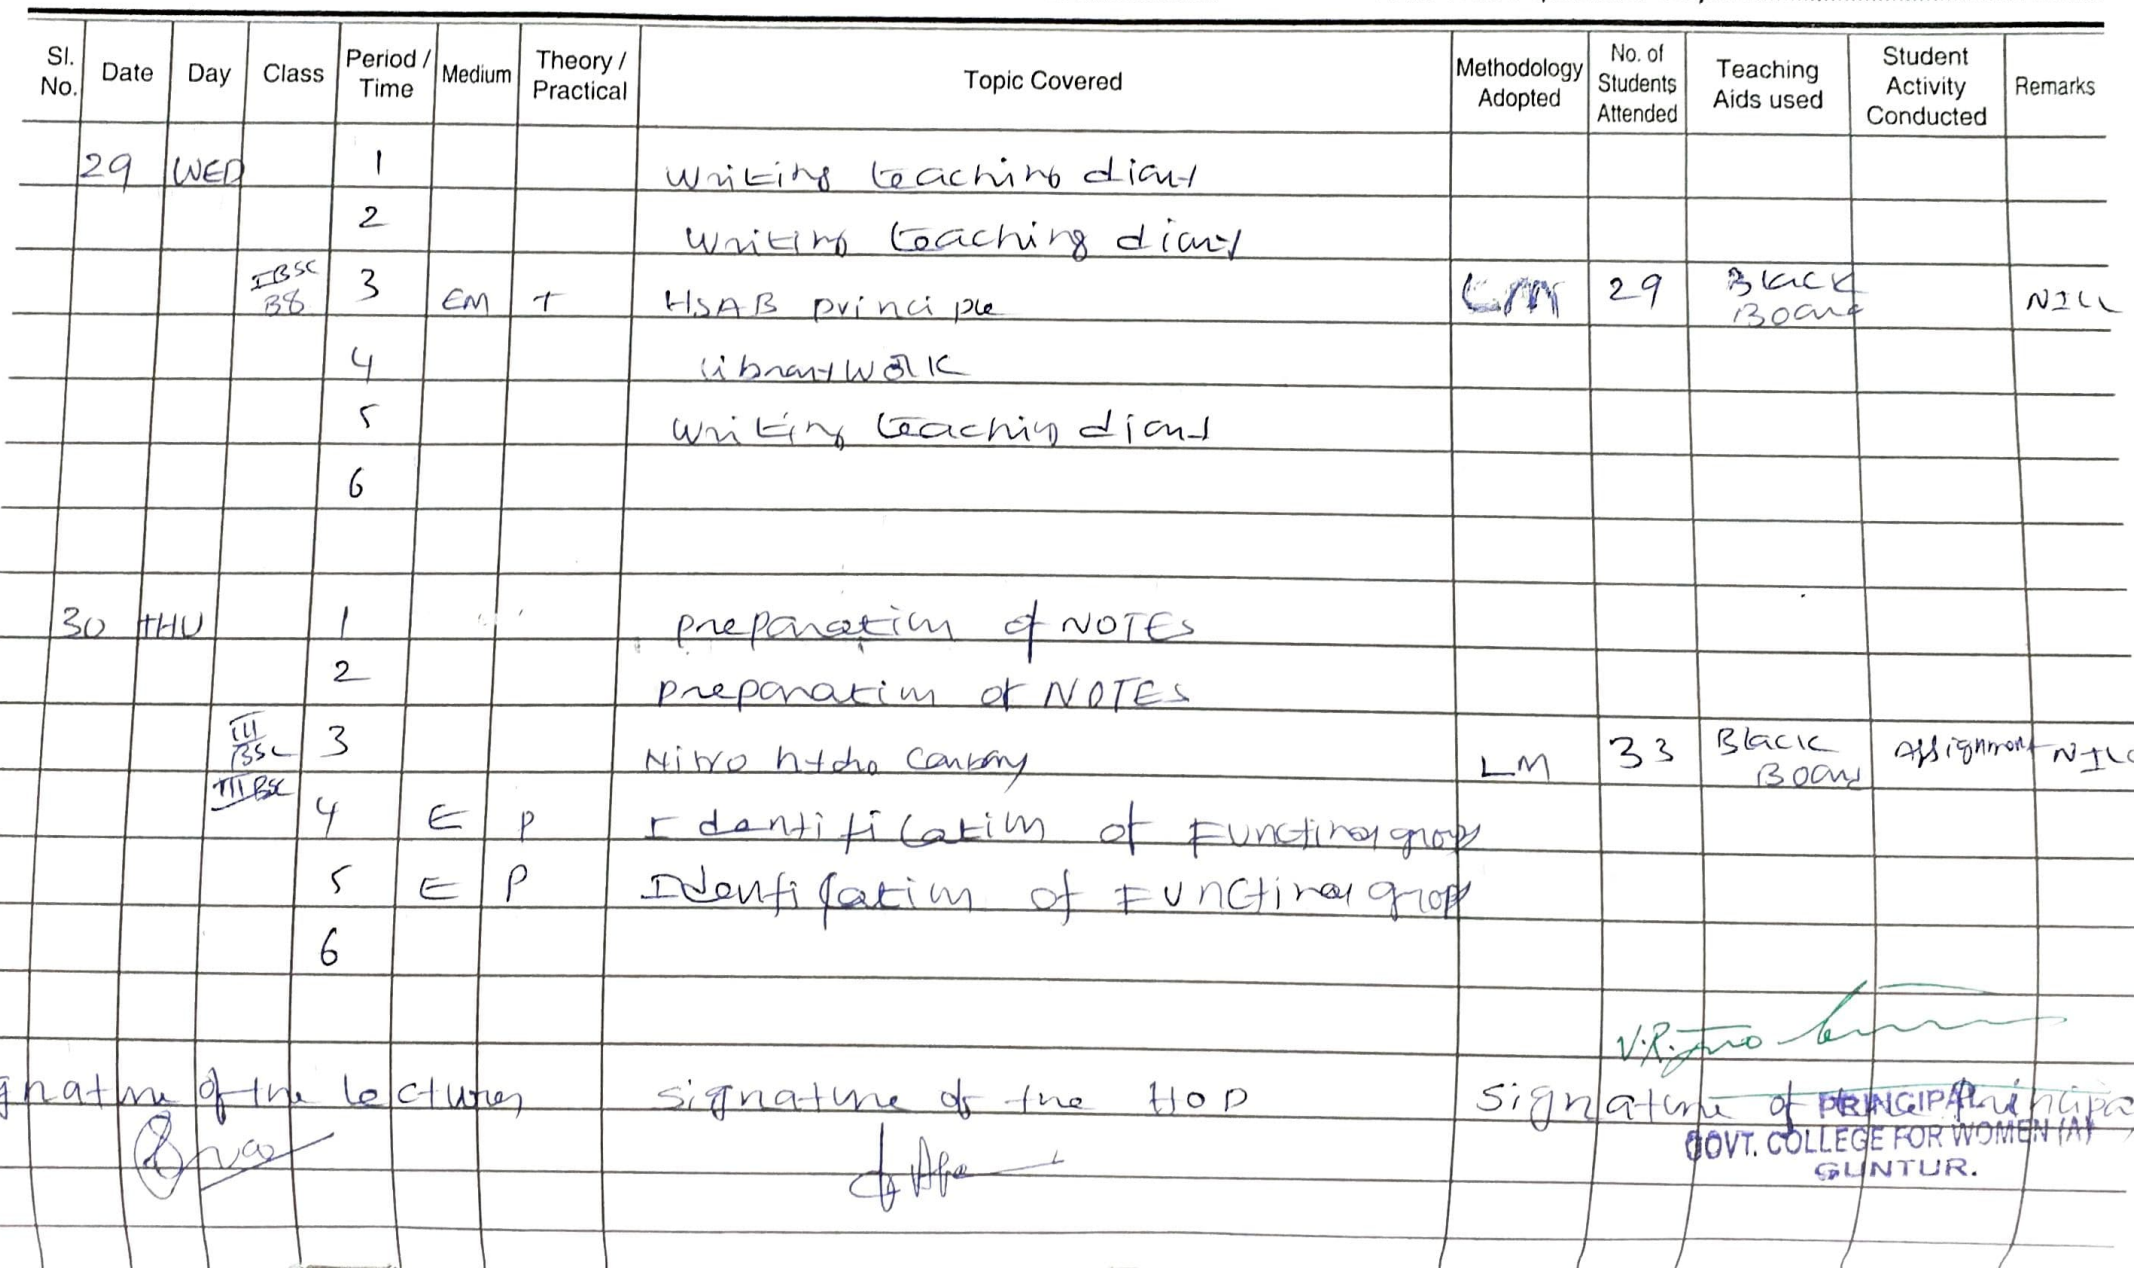 Sl. No. Date Day Class Period / Time Medium Theory / Practical Topic Covered Methodology Adopted No. of Students Attended Teaching Aids used Student Activity Conducted Remarks
29 WED 1 Writing teaching diary
2 Writing teaching diary
I BSC BB 3 EM T HSAB principle LM 29 Black Board NILL
4 library work
5 Writing teaching diary
6
30 THU 1 preparation of NOTES
2 preparation of NOTES
III BSC 3 Nitro hydro Carbony LM 33 Black Board Assignment NIL
III BSC 4 E P Identification of Functional group
5 E P Identification of Functional group
6
V.R.
gnature of the lecturer signature of the HOD signature of the Principa
PRINCIPAL
GOVT. COLLEGE FOR WOMEN (A)
GUNTUR.